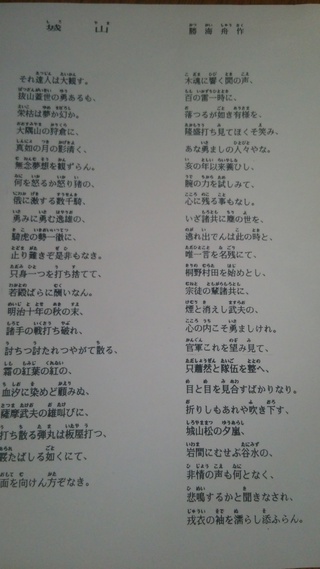 城　山
それ達人は大観す。
抜山蓋世の勇あるも、
栄枯は夢か幻か。
大隅山の狩倉に、
真如の月の影清く、
無念夢想を観ずらん。
何を怒るか怒り猪の、
俄に激する数千騎、
勇みに勇む逸雄の、
騎虎の勢一徹に、
止り難きぞ是非もなき。
只身一つを打ち捨てて、
若殿ばらに報いなん。
明治十年の秋の末、
諸手の戦打ち破れ、
討ちつ討たれつやがて散る、
霜の紅葉の紅の、
血汐に染めど顧みぬ、
薩摩武夫の雄叫びに、
打ち散る弾丸は板屋打つ、
霰たばしる如くにて、
面を向けん方ぞなき。
勝 海 舟 作
木魂に響く閧の声、
百の雷一時に、
落つるが如き有様を、
隆盛打ち見てほくそ笑み、
あな勇ましの人々やな。
亥の年以来養ひし、
腕の力を試しみて、
心に残る事もなし。
いざ諸共に塵の世を、
逃れ出でんは此の時と、
唯一言を名残にて、
桐野村田を始めとし、
宗徒の輩諸共に、
煙と消えし武夫の、
心の内こそ勇ましけれ。
官軍これを望み見て、
只粛然と隊伍を整へ、
目と目を見合すばかりなり。
折りしもあれや吹き下す、
城山松の夕嵐、
岩間にむせぶ谷水の、
非情の声も何となく、
悲鳴するかと聞きなされ、
戎衣の袖を濡らし添ふらん。